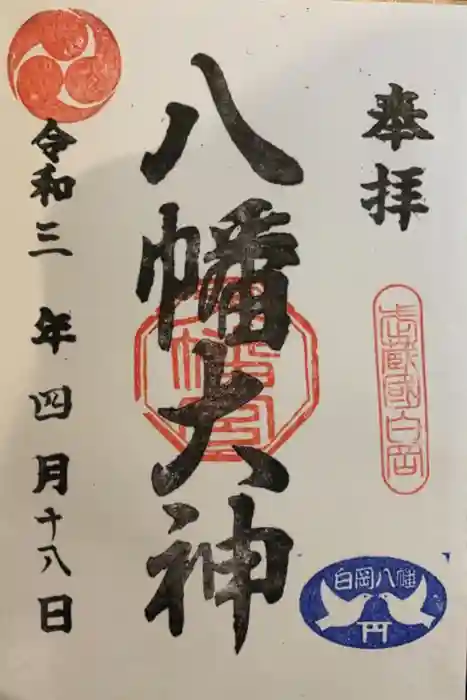 奉拝
武蔵國白岡
白岡八幡
八幡大神
八幡宮
令和三年四月十八日